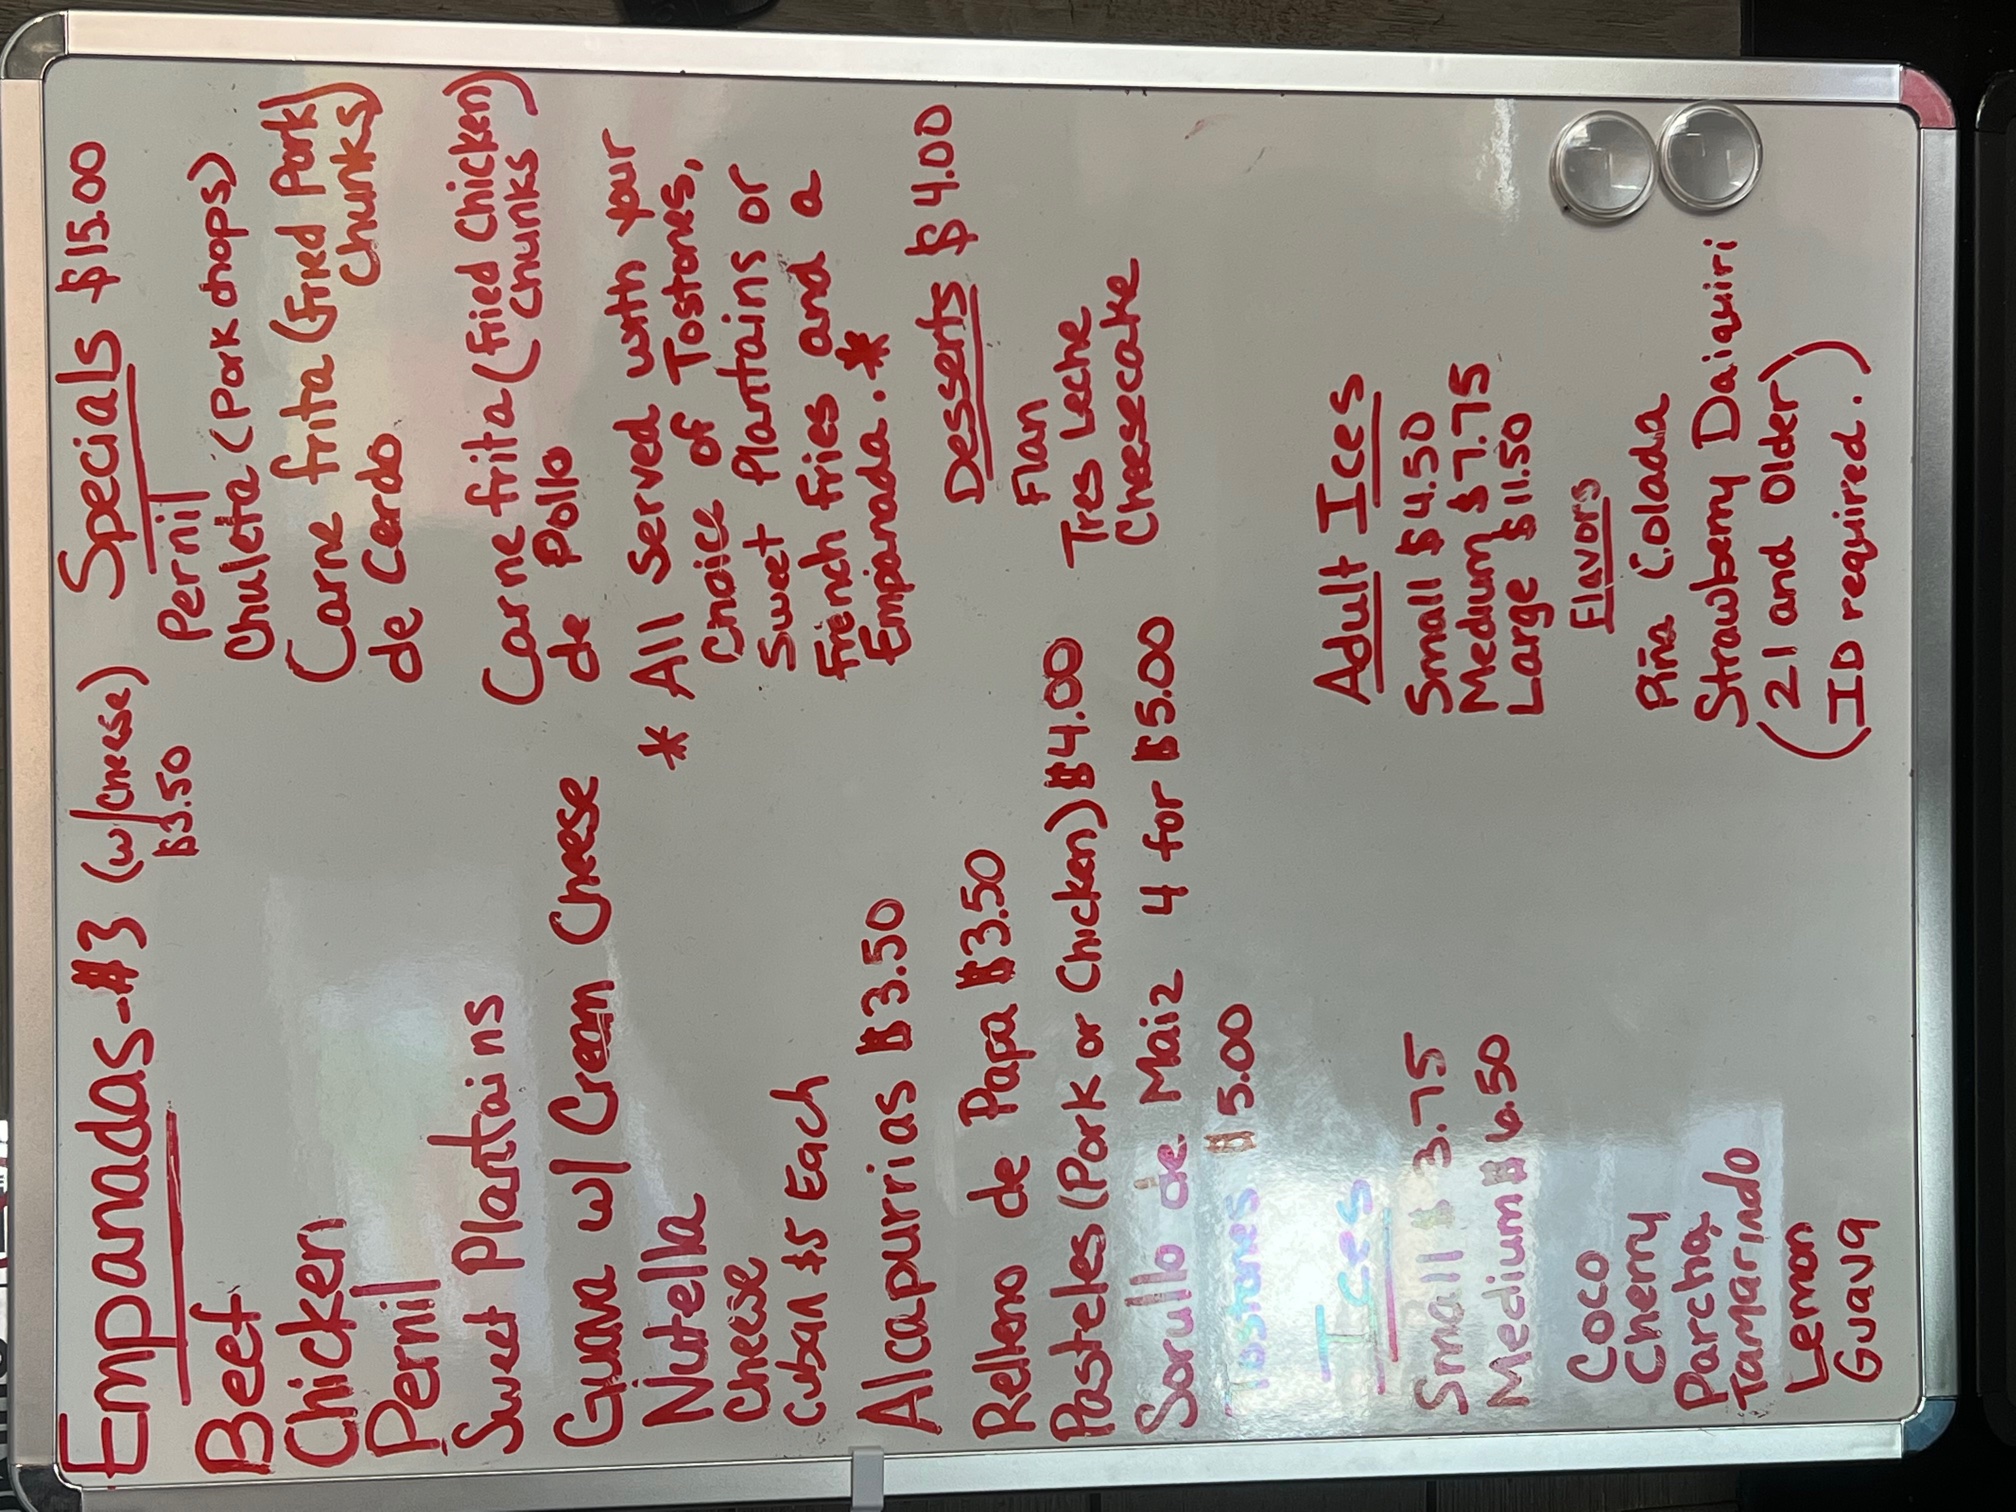 Empanadas-#3 (w/cheese)
$3.50
Beef
Chicken
Pernil
Sweet Plantains
Guava w/ Cream Cheese
Nutella
Cheese
Cuban $5 Each
Alcapurrias $3.50
Relleno de Papa $3.50
Pasteles (Pork or Chicken) $4.00
Sorullo de Maiz 4 for $5.00
Tostones $5.00
Ices
Small $3.75
Medium $6.50
Coco
Cherry
Parcha
Tamarindo
Lemon
Guava
Specials $15.00
Pernil
Chuleta (Pork chops)
Carne frita (Fried Pork)
de Cerdo Chunks)
Carne frita (Fried Chicken)
de Pollo (Chunks
* All Served with your
Choice of Tostones,
Sweet Plantains or
French Fries and a
Empanada. *
Desserts $4.00
Flan
Tres Leche
Cheesecake
Adult Ices
Small $4.50
Medium $7.75
Large $11.50
Flavors
Piña Colada
Strawberry Daiquiri
(21 and Older)
(ID required.)